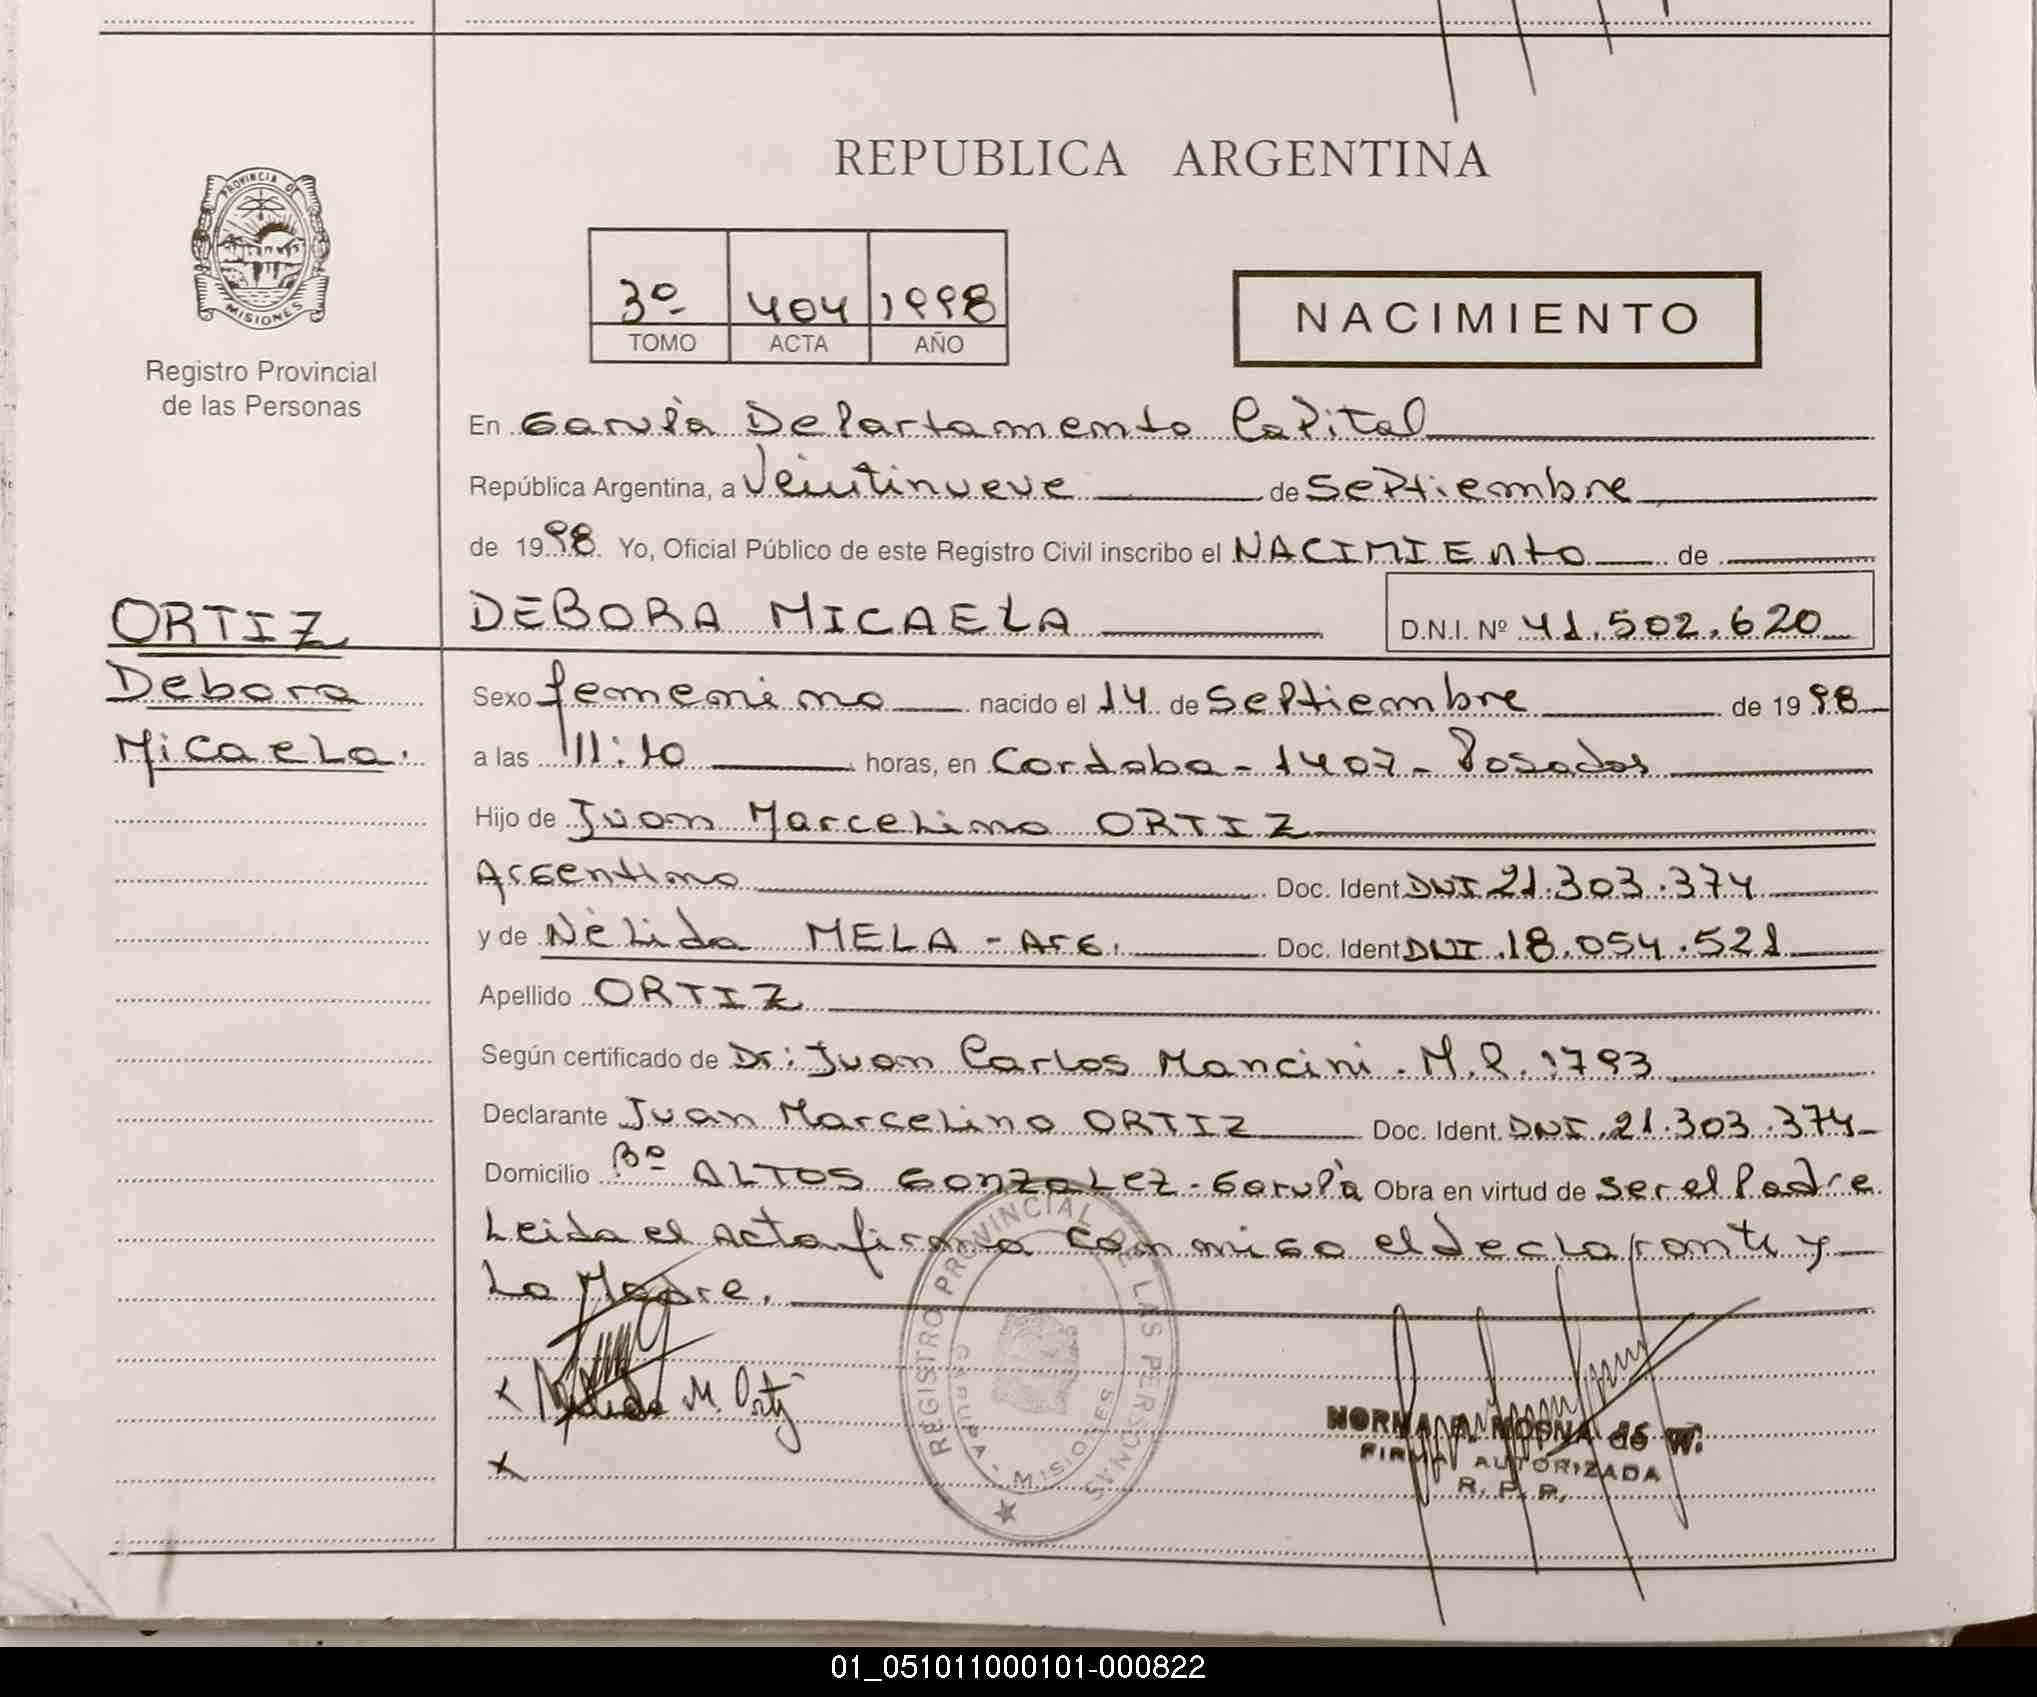 REPUBLICA ARGENTINA
PROVINCIA DE
MISIONES
Registro Provincial
de las Personas
3º 404 1998
TOMO ACTA AÑO
NACIMIENTO
En Garupá Departamento Capital
República Argentina, a Veintinueve de Septiembre
de 1998 Yo, Oficial Público de este Registro Civil inscribo el NACIMIENTO de
DEBORA MICAELA D.N.I. Nº 41.502.620
ORTIZ
Debora
Micaela.
Sexo femenino nacido el 14 de Septiembre de 1998
a las 11:10 horas, en Cordoba - 1407 - Posadas
Hijo de Juan Marcelino ORTIZ
Argentino Doc. Ident DNI 21.303.374
y de Nélida MELA - Arg. Doc. Ident DNI 18.054.521
Apellido ORTIZ
Según certificado de Dr: Juan Carlos Mancini. M.P. 1793
Declarante Juan Marcelino ORTIZ Doc. Ident. DNI 21.303.374
Domicilio Bº ALTOS GONZALEZ - Garupá Obra en virtud de ser el Padre
Leida el Acta firma conmigo el declarante y
La Madre.
x Nelida M. Ortiz
x
REGISTRO PROVINCIAL DE LAS PERSONAS
GARUPA - MISIONES
NORMA B. MOSNA de W.
FIRMA AUTORIZADA
R. P. P.
01_051011000101-000822